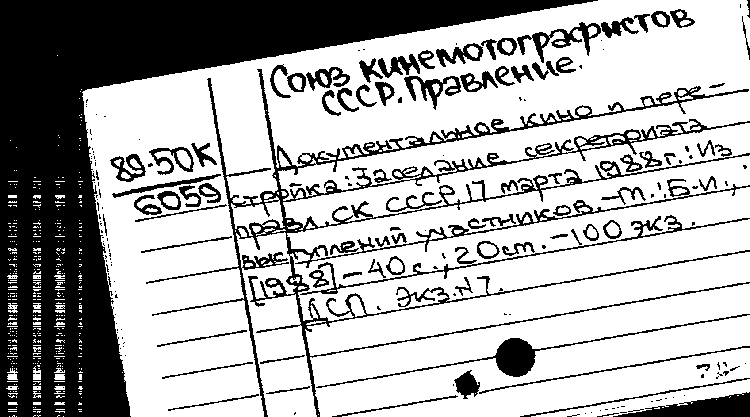 Союз кинемотографистов
СССР. Правление.
89-50К
6059
Документальное кино и пере-
стройка: Заседание секретариата
правл. СК СССР, 17 марта 1988 г.: Из
выступлений участников. - М.: Б.И.,
[1988]. - 40 с.; 20 см. - 100 экз.
ДСП. Экз. № 7.